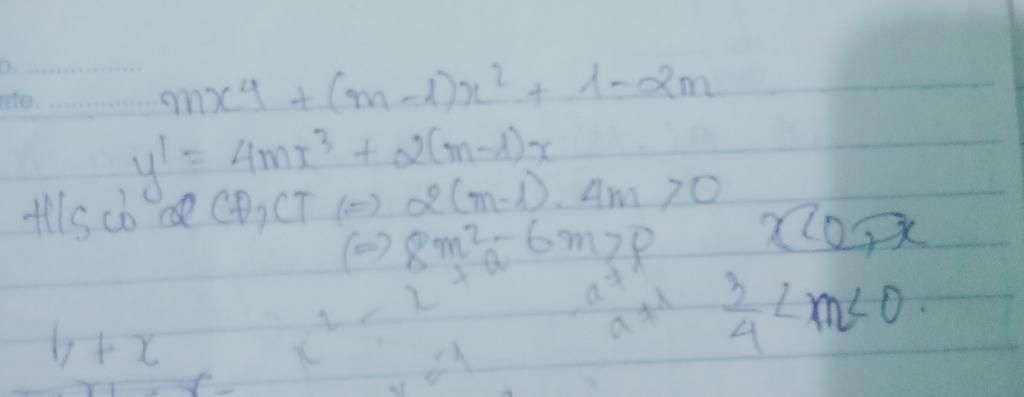 o. ................
ate. ................ mx⁴ + (m-1)x² + 1-2m
y' = 4mx³ + 2(m-1)x
H/s có 2 CĐ, CT (=) 2(m-1). 4m > 0
(=) 8m² - 6m > 0
x<0, x
+ a
3/4 < m < 0.
b + x